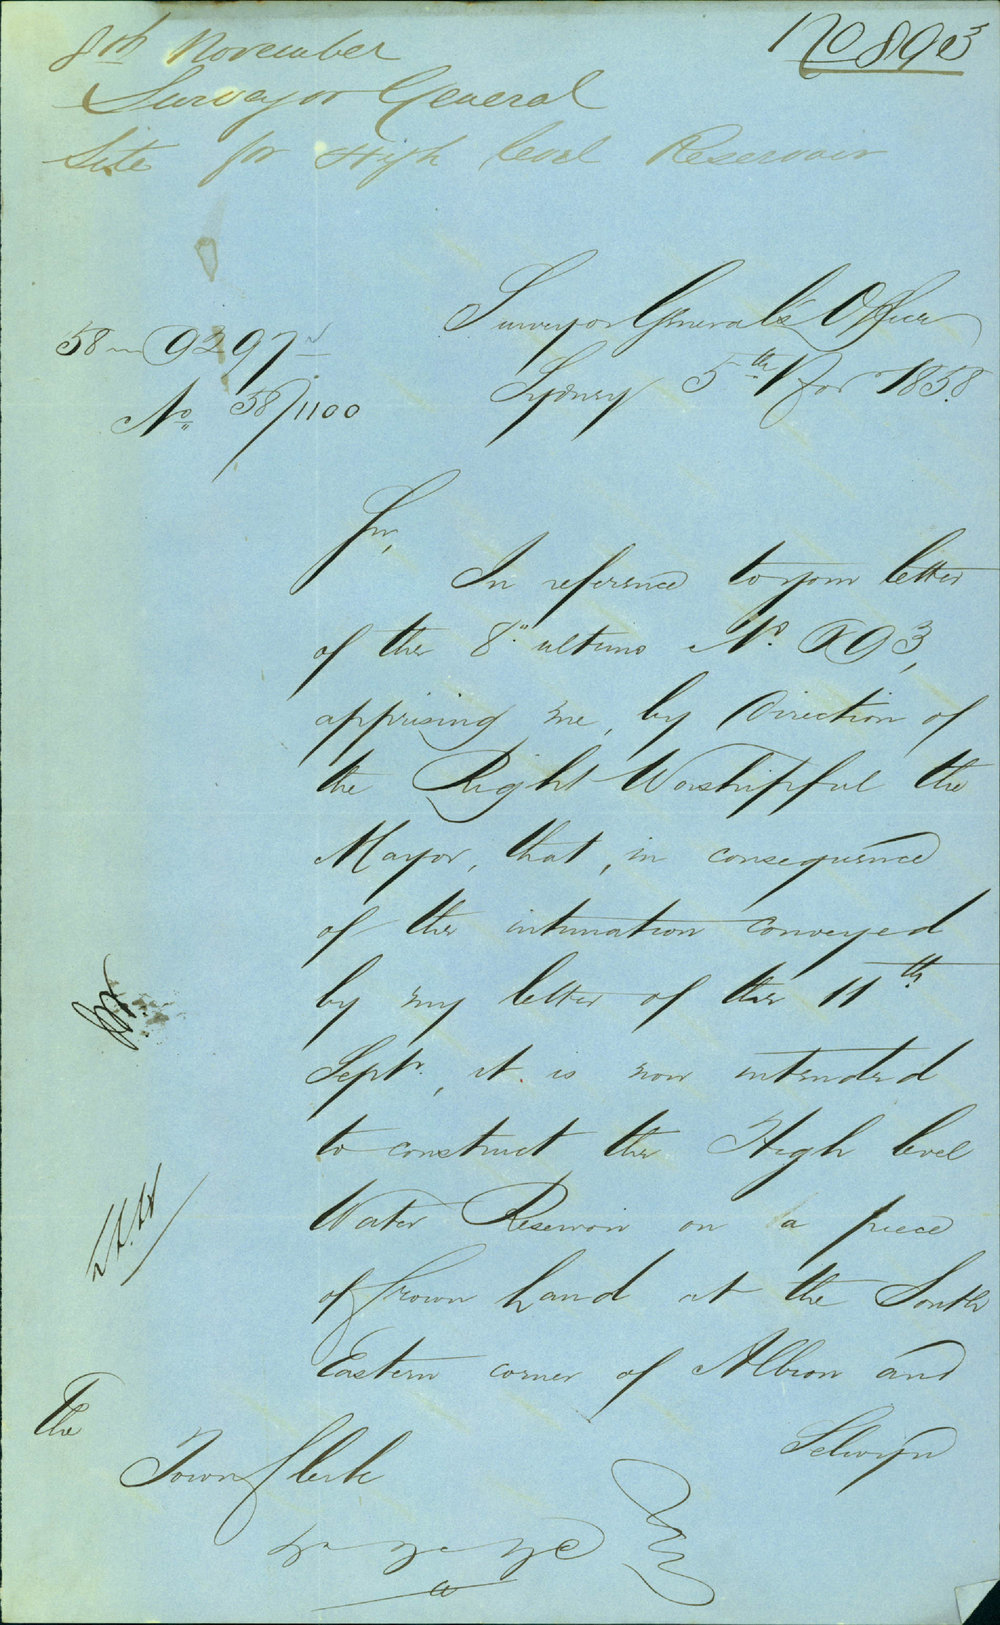 8th November
No 893
Surveyor General
Site for High level Reservoir
Surveyor General's Office
Sydney 5th Nov 1858.
58 9297
No. 58/1100
Sir,
In reference to your letter
of the 8" ultimo No. 893,
apprising me, by direction of
the Right Worshipful the
Mayor, that, in consequence
of the intimation conveyed
by my letter of the 11th
Septr, it is now intended
to construct the High level
Water Reservoir on a piece
of Crown Land at the South
Eastern corner of Albion and
Selwyn
The
Town Clerk